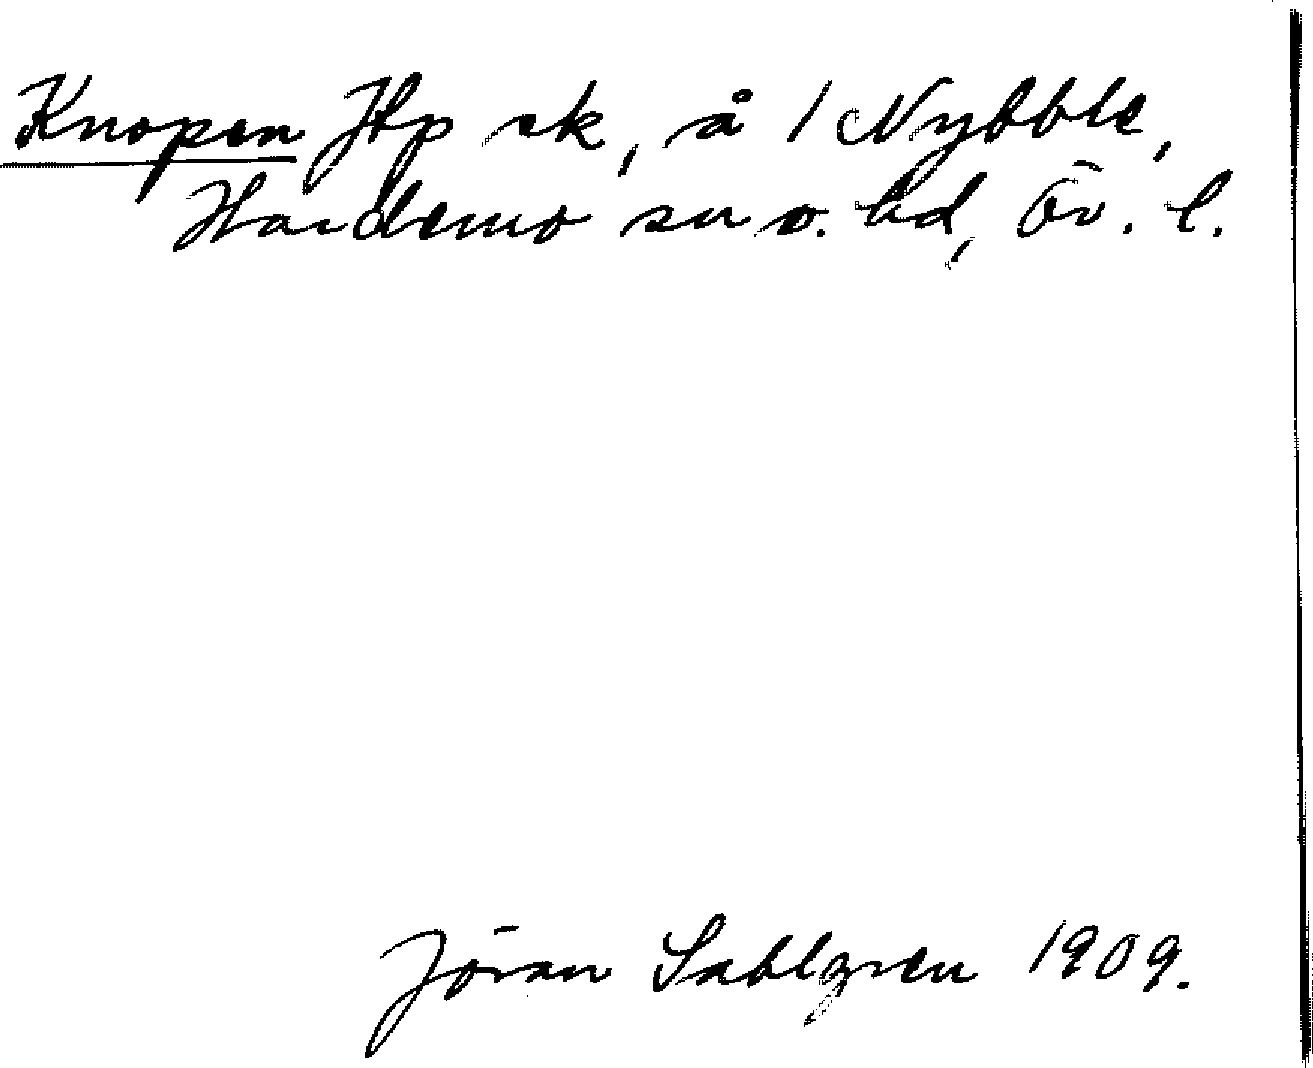 Knopen Htp sk, å 1 Nybble,
Hardemo sn o. hd, Ör. l.
Jöran Sahlgren 1909.